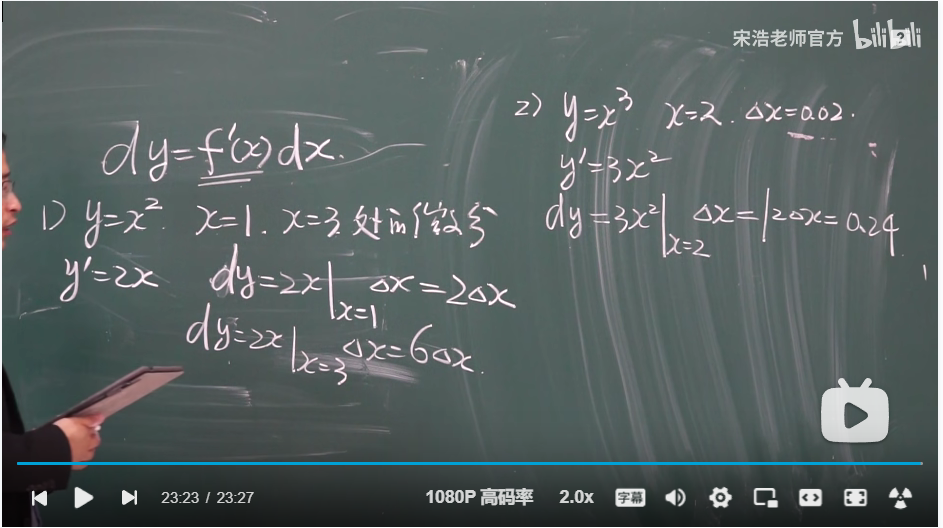 宋浩老师官方 bilibili
dy=f'(x)dx.
1) y=x². x=1. x=3处的微分
y'=2x dy=2x|x=1 Δx=2Δx
dy=2x|x=3 Δx=6Δx.
2) y=x³ x=2. Δx=0.02.
y'=3x²
dy=3x²|x=2 Δx=12Δx=0.24
23:23 / 23:27 1080P 高码率 2.0x 字幕